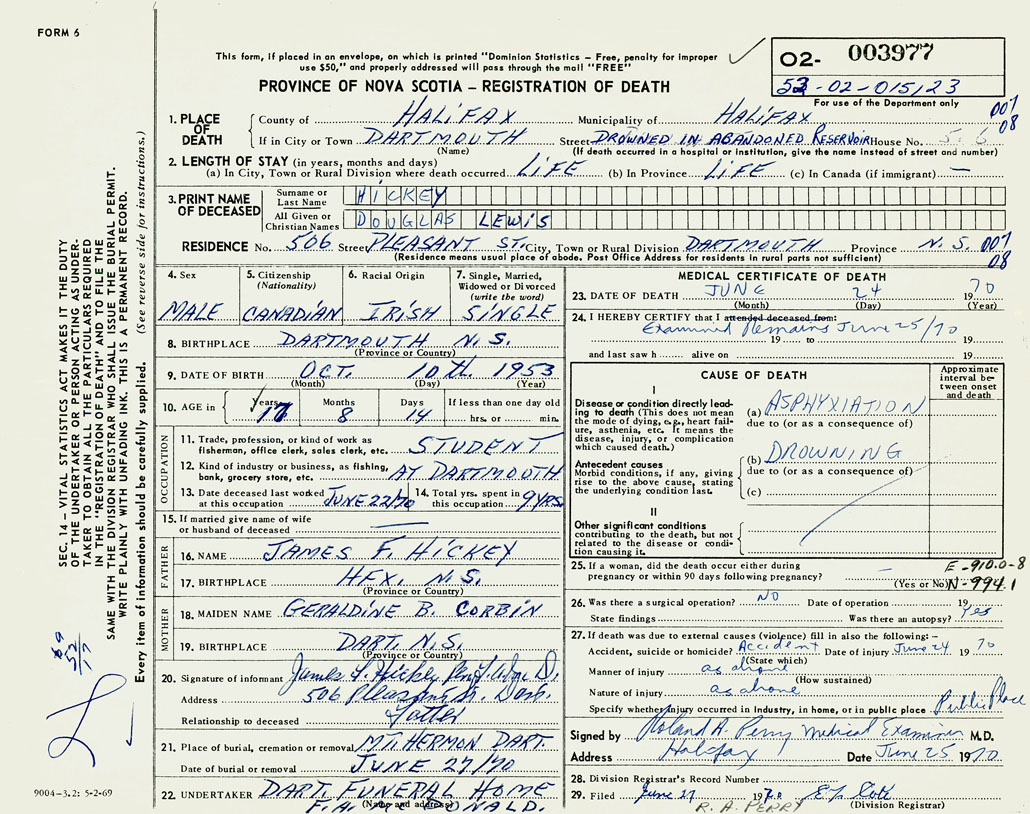 FORM 6
This form, if placed in an envelope, on which is printed "Dominion Statistics – Free, penalty for improper
use $50," and properly addressed will pass through the mail "FREE"
O2- 003977
52-02-015123
For use of the Department only
PROVINCE OF NOVA SCOTIA – REGISTRATION OF DEATH
007
08
1. PLACE OF DEATH
County of HALIFAX Municipality of HALIFAX
If in City or Town DARTMOUTH Street DROWNED IN ABANDONED RESERVOIR House No.
(Name) (If death occurred in a hospital or institution, give the name instead of street and number)
2. LENGTH OF STAY (in years, months and days)
(a) In City, Town or Rural Division where death occurred LIFE (b) In Province LIFE (c) In Canada (if immigrant) —
3. PRINT NAME OF DECEASED
Surname or Last Name HICKEY
All Given or Christian Names DOUGLAS LEWIS
RESIDENCE No. 506 Street PLEASANT ST. City, Town or Rural Division DARTMOUTH Province N.S. 007
(Residence means usual place of abode. Post Office Address for residents in rural parts not sufficient) 08
4. Sex
MALE
5. Citizenship
(Nationality)
CANADIAN
6. Racial Origin
IRISH
7. Single, Married,
Widowed or Divorced
(write the word)
SINGLE
8. BIRTHPLACE DARTMOUTH N.S.
(Province or Country)
9. DATE OF BIRTH OCT. 10th. 1953
(Month) (Day) (Year)
10. AGE in
Years Months Days If less than one day old
8 14 hrs. or min.
OCCUPATION
11. Trade, profession, or kind of work as
fisherman, office clerk, sales clerk, etc. STUDENT
12. Kind of industry or business, as fishing,
bank, grocery store, etc. AT DARTMOUTH
13. Date deceased last worked
at this occupation JUNE 22/70
14. Total yrs. spent in
this occupation 9 YRS
15. If married give name of wife
or husband of deceased —
FATHER
16. NAME JAMES F. HICKEY
17. BIRTHPLACE HFX. N.S.
(Province or Country)
MOTHER
18. MAIDEN NAME GERALDINE B. CORBIN
19. BIRTHPLACE DART. N.S.
(Province or Country)
20. Signature of informant James F. Hickey
Address 506 Pleasant St. Dart.
Relationship to deceased Father
21. Place of burial, cremation or removal MT. HERMON DART.
Date of burial or removal JUNE 27/70
22. UNDERTAKER DART. FUNERAL HOME
(Name and address)
MEDICAL CERTIFICATE OF DEATH
23. DATE OF DEATH JUNE 24 1970
(Month) (Day) (Year)
24. I HEREBY CERTIFY that I attended deceased from:
Examined Remains June 25/70
19 to 19
and last saw h alive on 19
CAUSE OF DEATH
Approximate
interval be-
tween onset
and death
I
Disease or condition directly lead-
ing to death (This does not mean
the mode of dying, e.g., heart fail-
ure, asthenia, etc. It means the
disease, injury, or complication
which caused death.)
(a) ASPHYXIATION
due to (or as a consequence of)
Antecedent causes
Morbid conditions, if any, giving
rise to the above cause, stating
the underlying condition last.
(b) DROWNING
due to (or as a consequence of)
(c)
II
Other significant conditions
contributing to the death, but not
related to the disease or condi-
tion causing it.
25. If a woman, did the death occur either during
pregnancy or within 90 days following pregnancy? —
(Yes or No)
E-910.0-8
N-994.1
26. Was there a surgical operation? NO Date of operation 19
State findings Was there an autopsy? Yes
27. If death was due to external causes (violence) fill in also the following:–
Accident, suicide or homicide? Accident Date of injury June 24 1970
(State which)
Manner of injury as above
(How sustained)
Nature of injury as above
Specify whether injury occurred in industry, in home, or in public place Public Place
Signed by Roland A. Perry Medical Examiner M.D.
Address Halifax Date June 25 1970
28. Division Registrar's Record Number
29. Filed June 27 1970
(Division Registrar)
R. A. PERRY
SEC. 14 – VITAL STATISTICS ACT MAKES IT THE DUTY
OF THE UNDERTAKER OR PERSON ACTING AS UNDER-
TAKER TO OBTAIN ALL THE PARTICULARS REQUIRED
IN THE "REGISTRATION OF DEATH" AND TO FILE THE
SAME WITH THE DIVISION REGISTRAR WHO SHALL ISSUE THE BURIAL PERMIT.
WRITE PLAINLY WITH UNFADING INK. THIS IS A PERMANENT RECORD.
Every item of information should be carefully supplied. (See reverse side for instructions.)
9004-3.2: 5-2-69